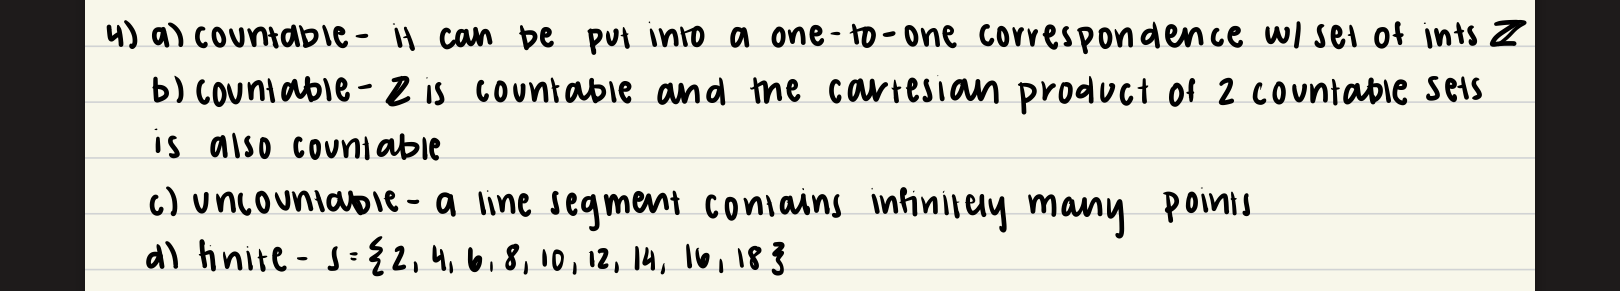 4) a) countable - it can be put into a one-to-one correspondence w/ set of ints ℤ
b) countable - ℤ is countable and the cartesian product of 2 countable sets
is also countable
c) uncountable - a line segment contains infinitely many points
d) finite - S = {2, 4, 6, 8, 10, 12, 14, 16, 18}